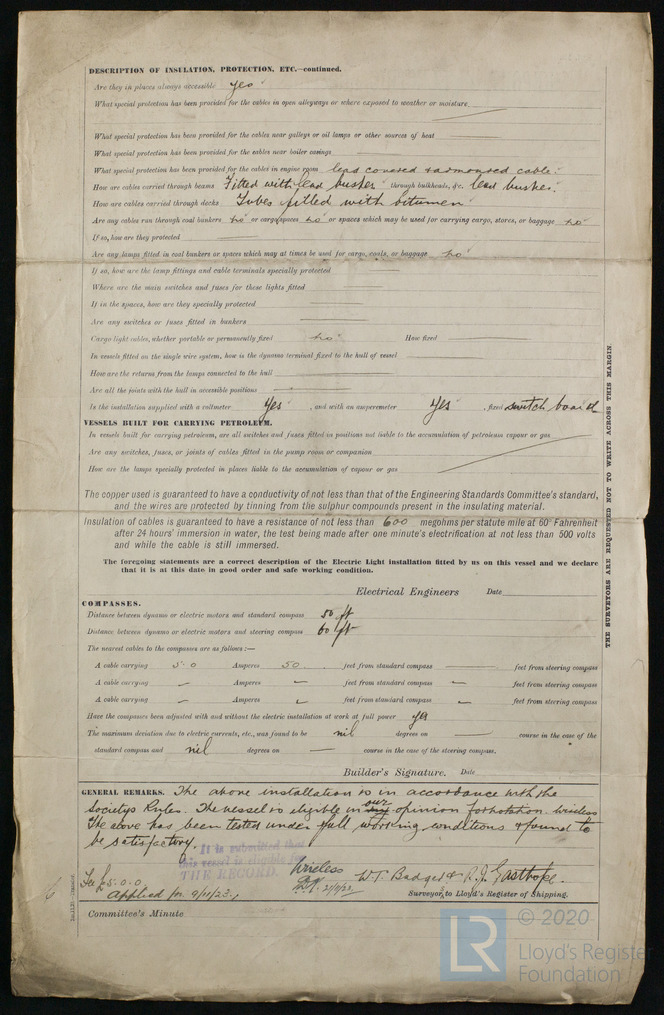 DESCRIPTION OF INSULATION, PROTECTION, ETC.—continued.
Are they in places always accessible yes
What special protection has been provided for the cables in open alleyways or where exposed to weather or moisture
What special protection has been provided for the cables near galleys or oil lamps or other sources of heat
What special protection has been provided for the cables near boiler casings
What special protection has been provided for the cables in engine room lead covered & armoured cable.
How are cables carried through beams Fitted with lead bushes through bulkheads, &c. lead bushes.
How are cables carried through decks Tubes filled with bitumen
Are any cables run through coal bunkers no or cargo spaces no or spaces which may be used for carrying cargo, stores, or baggage no
If so, how are they protected
Are any lamps fitted in coal bunkers or spaces which may at times be used for cargo, coals, or baggage no
If so, how are the lamp fittings and cable terminals specially protected
Where are the main switches and fuses for these lights fitted
If in the spaces, how are they specially protected
Are any switches or fuses fitted in bunkers
Cargo light cables, whether portable or permanently fixed no How fixed
In vessels fitted on the single wire system, how is the dynamo terminal fixed to the hull of vessel
How are the returns from the lamps connected to the hull
Are all the joints with the hull in accessible positions
Is the installation supplied with a voltmeter Yes , and with an amperemeter Yes , fixed switch board
VESSELS BUILT FOR CARRYING PETROLEUM.
In vessels built for carrying petroleum, are all switches and fuses fitted in positions not liable to the accumulation of petroleum vapour or gas
Are any switches, fuses, or joints of cables fitted in the pump room or companion
How are the lamps specially protected in places liable to the accumulation of vapour or gas
The copper used is guaranteed to have a conductivity of not less than that of the Engineering Standards Committee's standard,
and the wires are protected by tinning from the sulphur compounds present in the insulating material.
Insulation of cables is guaranteed to have a resistance of not less than 600 megohms per statute mile at 60° Fahrenheit
after 24 hours' immersion in water, the test being made after one minute's electrification at not less than 500 volts
and while the cable is still immersed.
The foregoing statements are a correct description of the Electric Light installation fitted by us on this vessel and we declare
that it is at this date in good order and safe working condition.
Electrical Engineers Date
COMPASSES.
Distance between dynamo or electric motors and standard compass 50 ft
Distance between dynamo or electric motors and steering compass 60 ft
The nearest cables to the compasses are as follows:—
A cable carrying 5.0 Amperes 50 feet from standard compass — feet from steering compass
A cable carrying — Amperes — feet from standard compass — feet from steering compass
A cable carrying — Amperes — feet from standard compass — feet from steering compass
Have the compasses been adjusted with and without the electric installation at work at full power yes
The maximum deviation due to electric currents, etc., was found to be nil degrees on — course in the case of the
standard compass and nil degrees on — course in the case of the steering compass.
Builder's Signature. Date
GENERAL REMARKS. The above installation is in accordance with the
Society's Rules. The vessel is eligible in our opinion for notation. wireless
The above has been tested under full working conditions & found to
be satisfactory.
It is submitted that
this vessel is eligible for
THE RECORD. Wireless
Fee £5.0.0 W.T. Badger & R.J. Easthope.
Applied for 9/11/23. Surveyors to Lloyd's Register of Shipping.
Committee's Minute
THE SURVEYORS ARE REQUESTED NOT TO WRITE ACROSS THIS MARGIN.
© 2020
LR
Lloyd's Register
Foundation